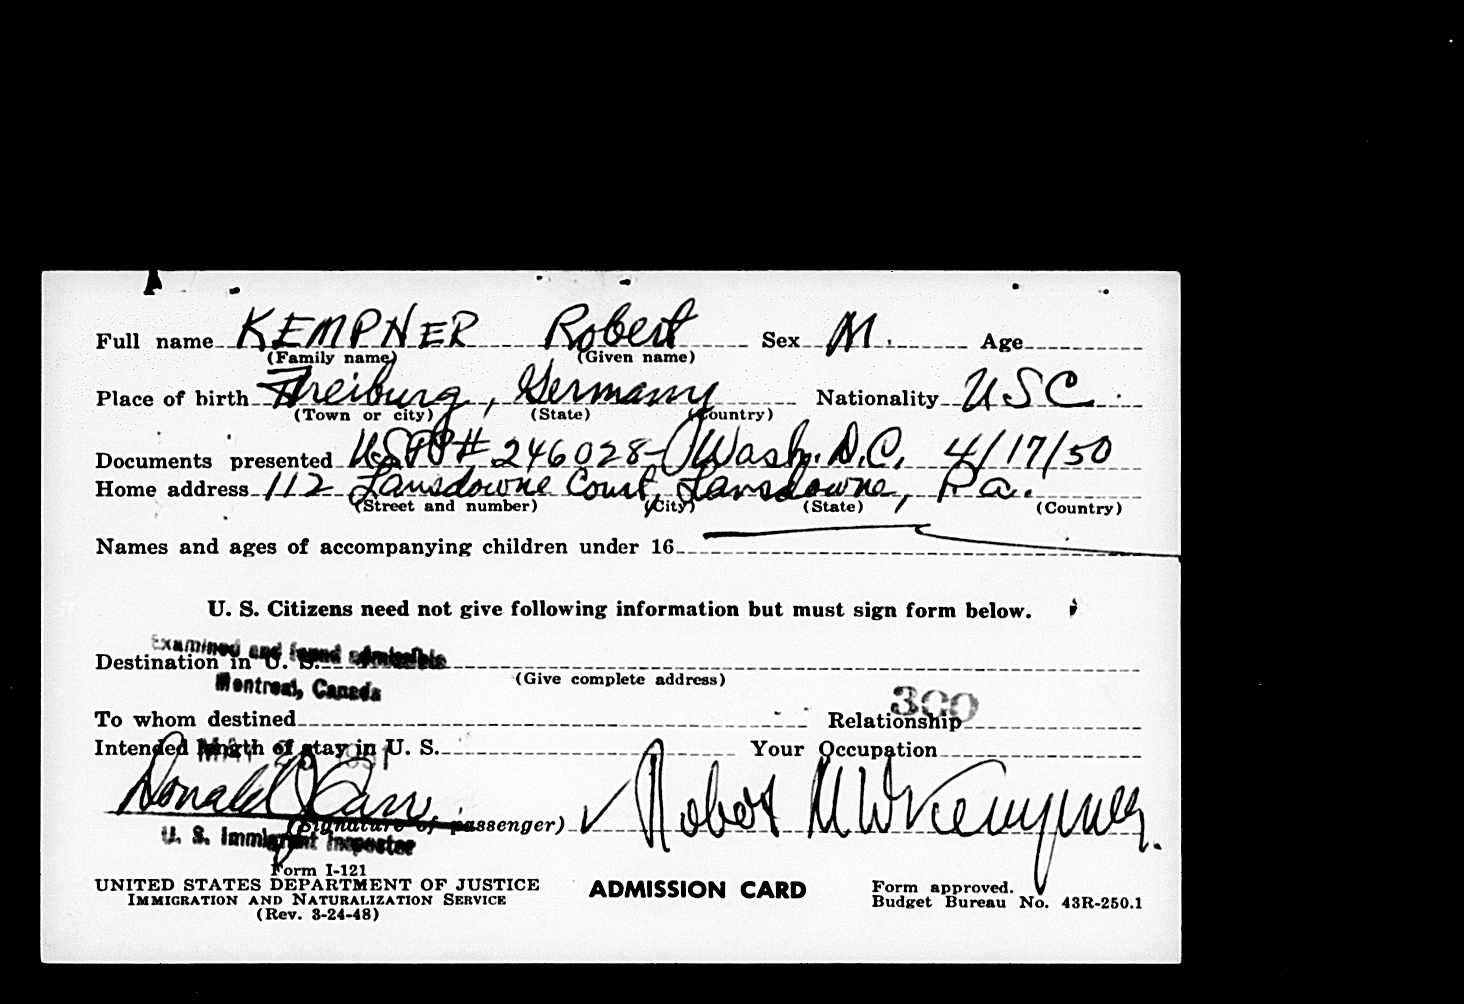 Full name KEMPNER Robert Sex M. Age
(Family name) (Given name)
Place of birth Freiburg, Germany Nationality USC
(Town or city) (State) (Country)
Documents presented USPP# 246028-Wash. D.C. 4/17/50
Home address 112 Lansdowne Court, Lansdowne, Pa.
(Street and number) (City) (State) (Country)
Names and ages of accompanying children under 16
U. S. Citizens need not give following information but must sign form below.
Examined and found admissible
Destination in U. S.
(Give complete address)
Montreal, Canada
300
To whom destined Relationship
Intended length of stay in U. S. Your Occupation
Donald J Carr Robert M W Kempner.
(Signature of passenger)
U. S. Immigrant Inspector
Form I-121
UNITED STATES DEPARTMENT OF JUSTICE ADMISSION CARD Form approved.
IMMIGRATION AND NATURALIZATION SERVICE Budget Bureau No. 43R-250.1
(Rev. 3-24-48)